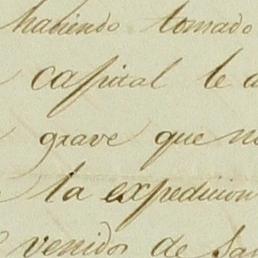 habiendo tomado
capital le
grave que
la expedicion
venidos de